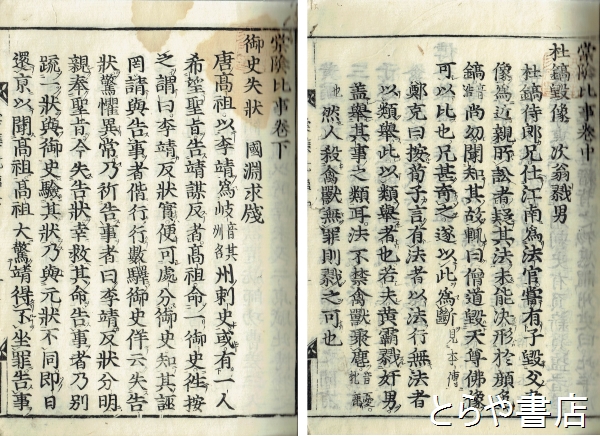 棠陰比事卷中
杜鎬毀像　次翁戮男
杜鎬侍郎兄仕江南為法官嘗有子毀父畫
像為近親所訟者疑其法未能決形於顏色
鎬尚幼聞知其故輒曰僧道毀天尊佛像
可以比也兄甚奇之遂以此為斷見本傳
鄭克曰按荀子言有法者以法行無法者
以類舉此以類舉者也若夫黃霸戮姧男
蓋舉其事之類耳法不禁禽獸聚麀
也然人殺禽獸無罪則戮之可也
棠陰比事卷下
御史失狀　國淵求牋
唐高祖以李靖為岐州刺史或有一人
希望聖旨告靖謀反者高祖命一御史徃按
之謂曰李靖反狀實便可處分御史知其誣
罔請與告事者偕行行數驛御史佯云失告
狀驚懼異常乃祈告事者曰李靖反狀分明
親奉聖旨今失告狀幸救其命告事者乃別
疏一狀與御史驗其狀乃與元狀不同即日
還京以聞高祖大驚靖得不坐罪告事
とらや書店